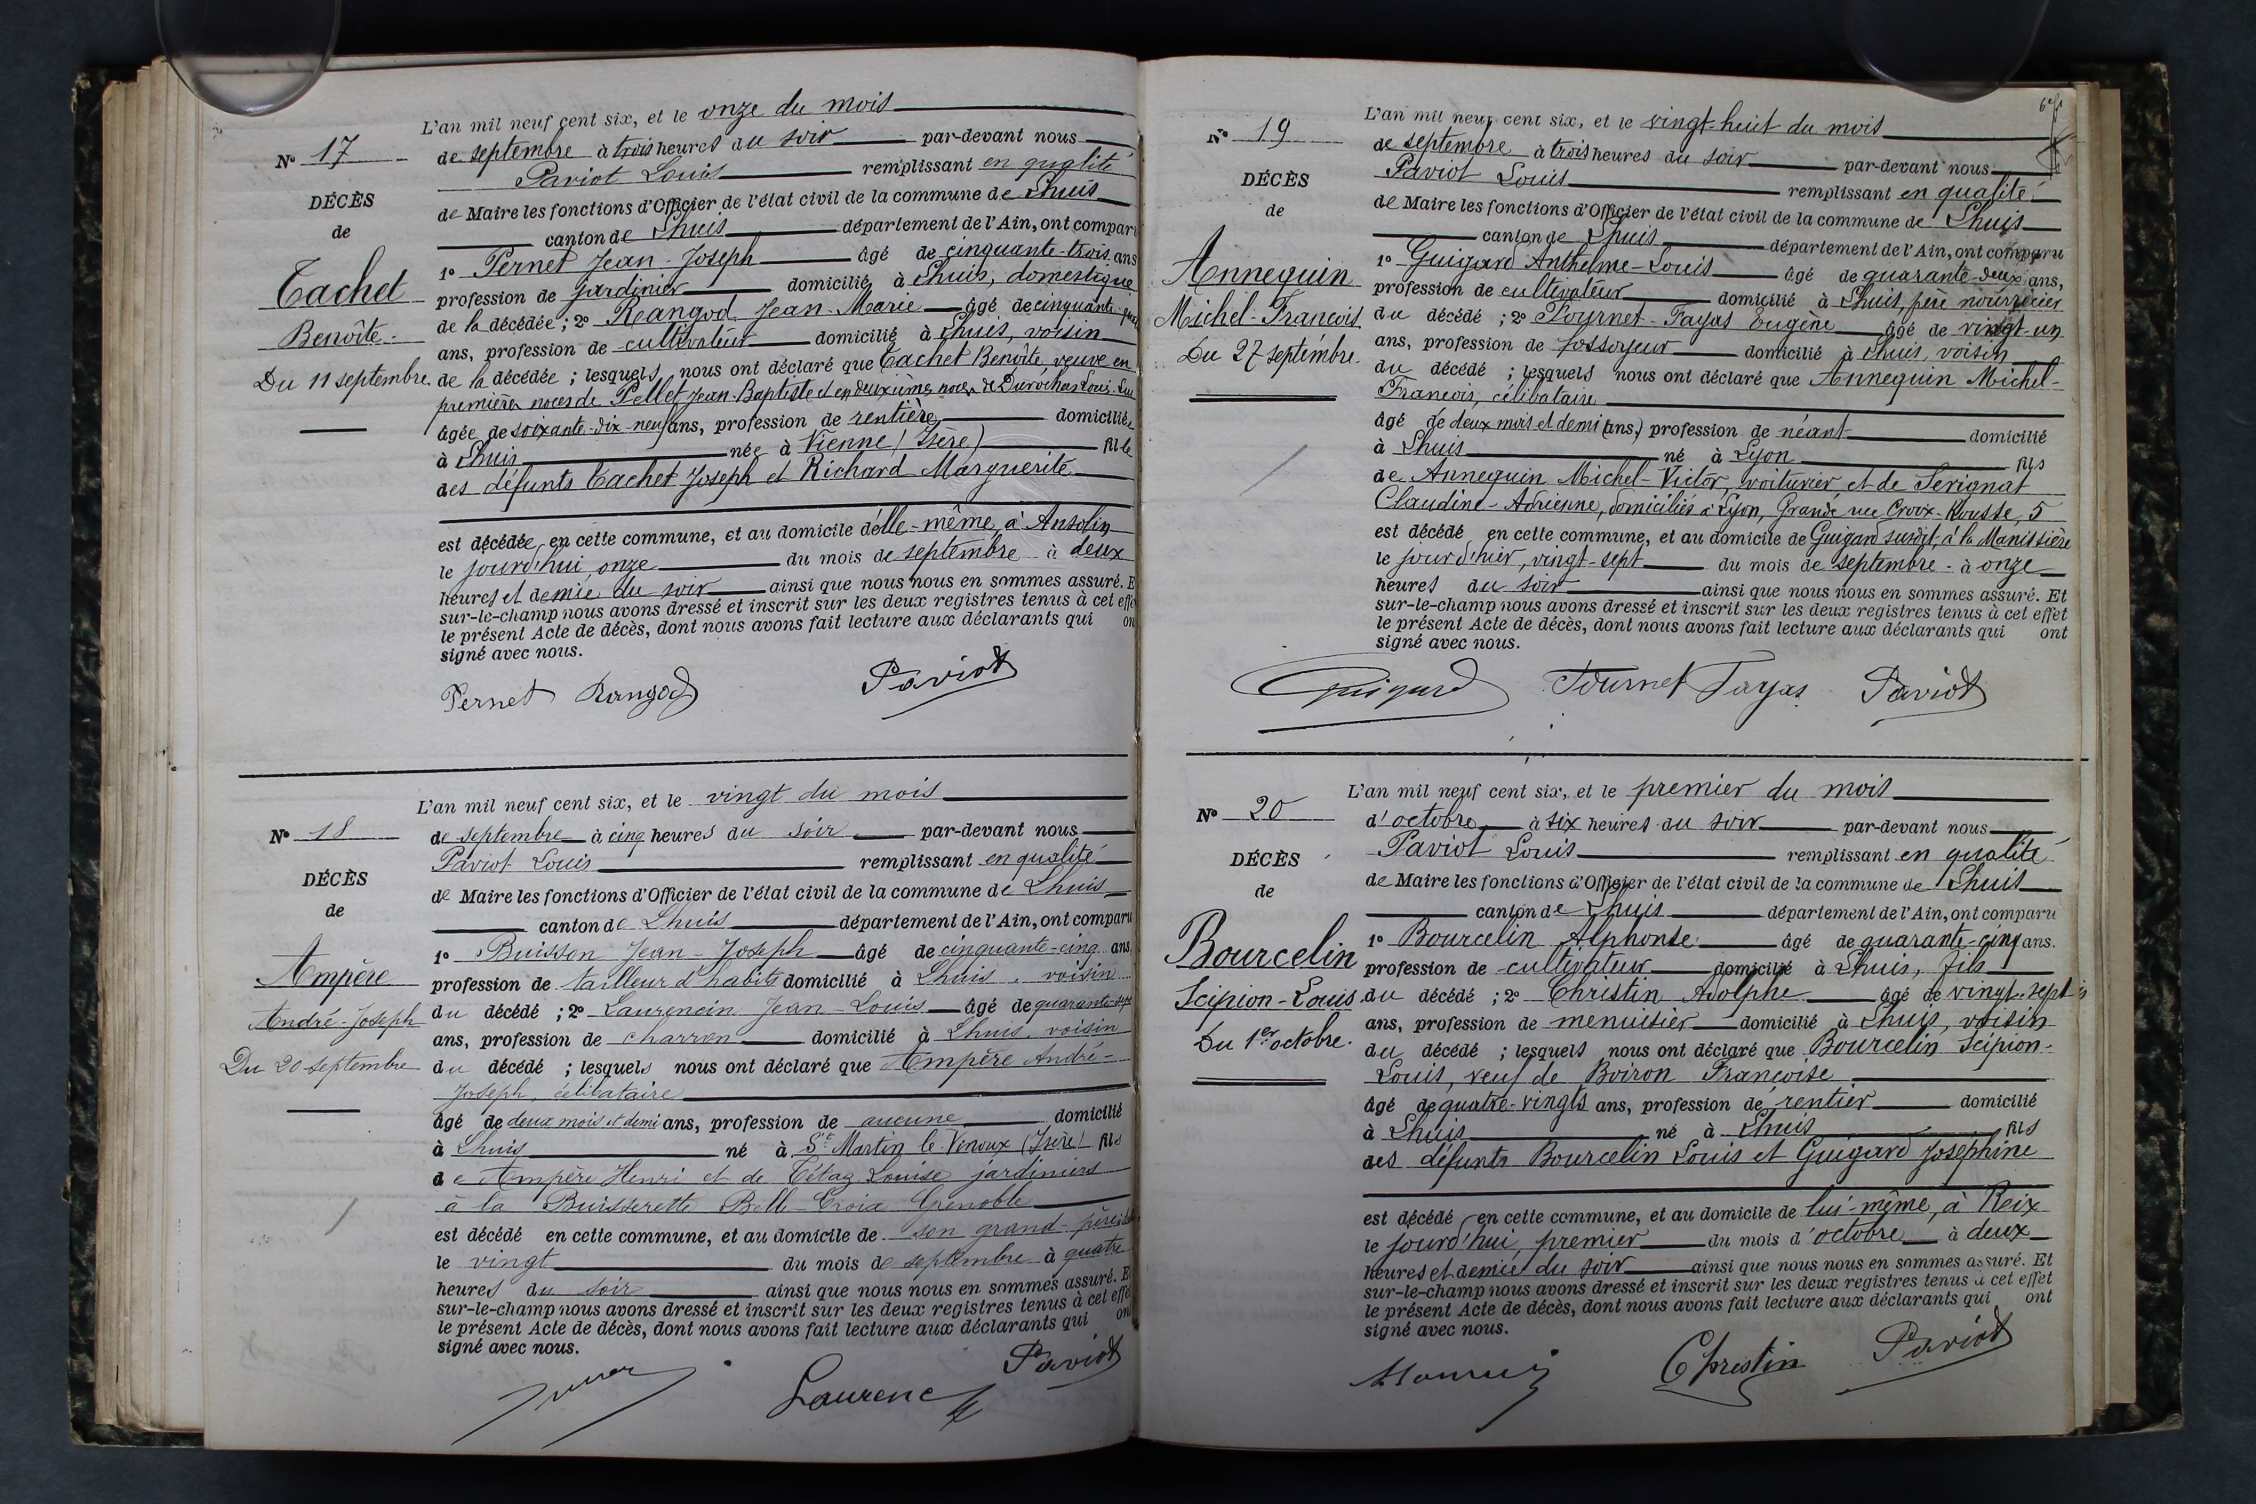 L'an mil neuf cent six, et le onze du mois
N° 17
de septembre à trois heures du soir par-devant nous
Paviot Louis remplissant en qualité
DÉCÈS
de Maire les fonctions d'Officier de l'état civil de la commune de Lhuis
de
canton de Lhuis département de l'Ain, ont comparu
1° Pernet Jean-Joseph âgé de cinquante-trois ans
Cachet
profession de jardinier domicilié à Lhuis, domestique
de la décédée ; 2° Rangod Jean-Marie âgé de cinquante
Benoîte
ans, profession de cultivateur domicilié à Lhuis, voisin
Du 11 septembre.
de la décédée ; lesquels nous ont déclaré que Cachet Benoîte, veuve en
premières noces de Pellet Jean-Baptiste et en deuxièmes noces de Louis
âgée de soixante-dix-neuf ans, profession de rentière domiciliée
à Lhuis née à Vienne (Isère) fille
des défunts Cachet Joseph et Richard Marguerite
est décédée en cette commune, et au domicile d'elle-même, à Ansolin
le jourd'hui onze du mois de septembre à deux
heures et demie du soir ainsi que nous nous en sommes assuré. E
sur-le-champ nous avons dressé et inscrit sur les deux registres tenus à cet effe
le présent Acte de décès, dont nous avons fait lecture aux déclarants qui on
signé avec nous.
Pernet Rangod Paviot
L'an mil neuf cent six, et le vingt du mois
N° 18
de septembre à cinq heures du soir par-devant nous
Paviot Louis remplissant en qualité
DÉCÈS
de Maire les fonctions d'Officier de l'état civil de la commune de Lhuis
de
canton de Lhuis département de l'Ain, ont comparu
1° Buisson Jean-Joseph âgé de cinquante-cinq ans
Ampère
profession de tailleur d'habits domicilié à Lhuis, voisin
André-Joseph
du décédé ; 2° Laurencin Jean-Louis âgé de quarante-sept
ans, profession de charron domicilié à Lhuis, voisin
Du 20 septembre
du décédé ; lesquels nous ont déclaré que Ampère André-
Joseph, célibataire
âgé de deux mois et demi ans, profession de aucune domicilié
à Lhuis né à St Martin le Vinoux (Isère) fils
de Ampère Henri et de Tétaz Louise jardiniers
à la Buisserette Belle-Croix Grenoble
est décédé en cette commune, et au domicile de son grand-père
le vingt du mois de septembre à quatre
heures du soir ainsi que nous nous en sommes assuré. E
sur-le-champ nous avons dressé et inscrit sur les deux registres tenus à cet effe
le présent Acte de décès, dont nous avons fait lecture aux déclarants qui on
signé avec nous.
Laurenc Paviot
L'an mil neuf cent six, et le vingt-huit du mois
N° 19
de septembre à trois heures du soir par-devant nous
Paviot Louis remplissant en qualité
DÉCÈS
de Maire les fonctions d'Officier de l'état civil de la commune de Lhuis
de
canton de Lhuis département de l'Ain, ont comparu
1° Guigard Anthelme-Louis âgé de quarante-deux ans,
Annequin
profession de cultivateur domicilié à Lhuis, père nourricier
Michel-François
du décédé ; 2° Tournet-Fayas Eugène âgé de vingt-un
ans, profession de fossoyeur domicilié à Lhuis, voisin
Du 27 septembre.
du décédé ; lesquels nous ont déclaré que Annequin Michel-
François, célibataire
âgé de deux mois et demi (ans,) profession de néant domicilié
à Lhuis né à Lyon fils
de Annequin Michel-Victor, voiturier et de Serignat
Claudine-Adrienne, domiciliés à Lyon, Grande rue Croix-Rousse, 5
est décédé en cette commune, et au domicile de Guigard susdit, à la Manissière
le jour d'hier, vingt-sept du mois de septembre à onze
heures du soir ainsi que nous nous en sommes assuré. Et
sur-le-champ nous avons dressé et inscrit sur les deux registres tenus à cet effet
le présent Acte de décès, dont nous avons fait lecture aux déclarants qui ont
signé avec nous.
Guigard Tournet Fayas Paviot
L'an mil neuf cent six, et le premier du mois
N° 20
d'octobre à six heures du soir par-devant nous
Paviot Louis remplissant en qualité
DÉCÈS
de Maire les fonctions d'Officier de l'état civil de la commune de Lhuis
de
canton de Lhuis département de l'Ain, ont comparu
1° Bourcelin Alphonse âgé de quarante-cinq ans.
Bourcelin
profession de cultivateur domicilié à Lhuis, fils
Scipion-Louis
du décédé ; 2° Christin Adolphe âgé de vingt-sept
ans, profession de menuisier domicilié à Lhuis, voisin
Du 1er octobre.
du décédé ; lesquels nous ont déclaré que Bourcelin Scipion-
Louis, veuf de Boiron Françoise
âgé de quatre-vingts ans, profession de rentier domicilié
à Lhuis né à Lhuis fils
des défunts Bourcelin Louis et Guigard Joséphine
est décédé en cette commune, et au domicile de lui-même, à Reix
le jourd'hui, premier du mois d'octobre à deux
heures et demie du soir ainsi que nous nous en sommes assuré. Et
sur-le-champ nous avons dressé et inscrit sur les deux registres tenus à cet effet
le présent Acte de décès, dont nous avons fait lecture aux déclarants qui ont
signé avec nous.
Christin Paviot